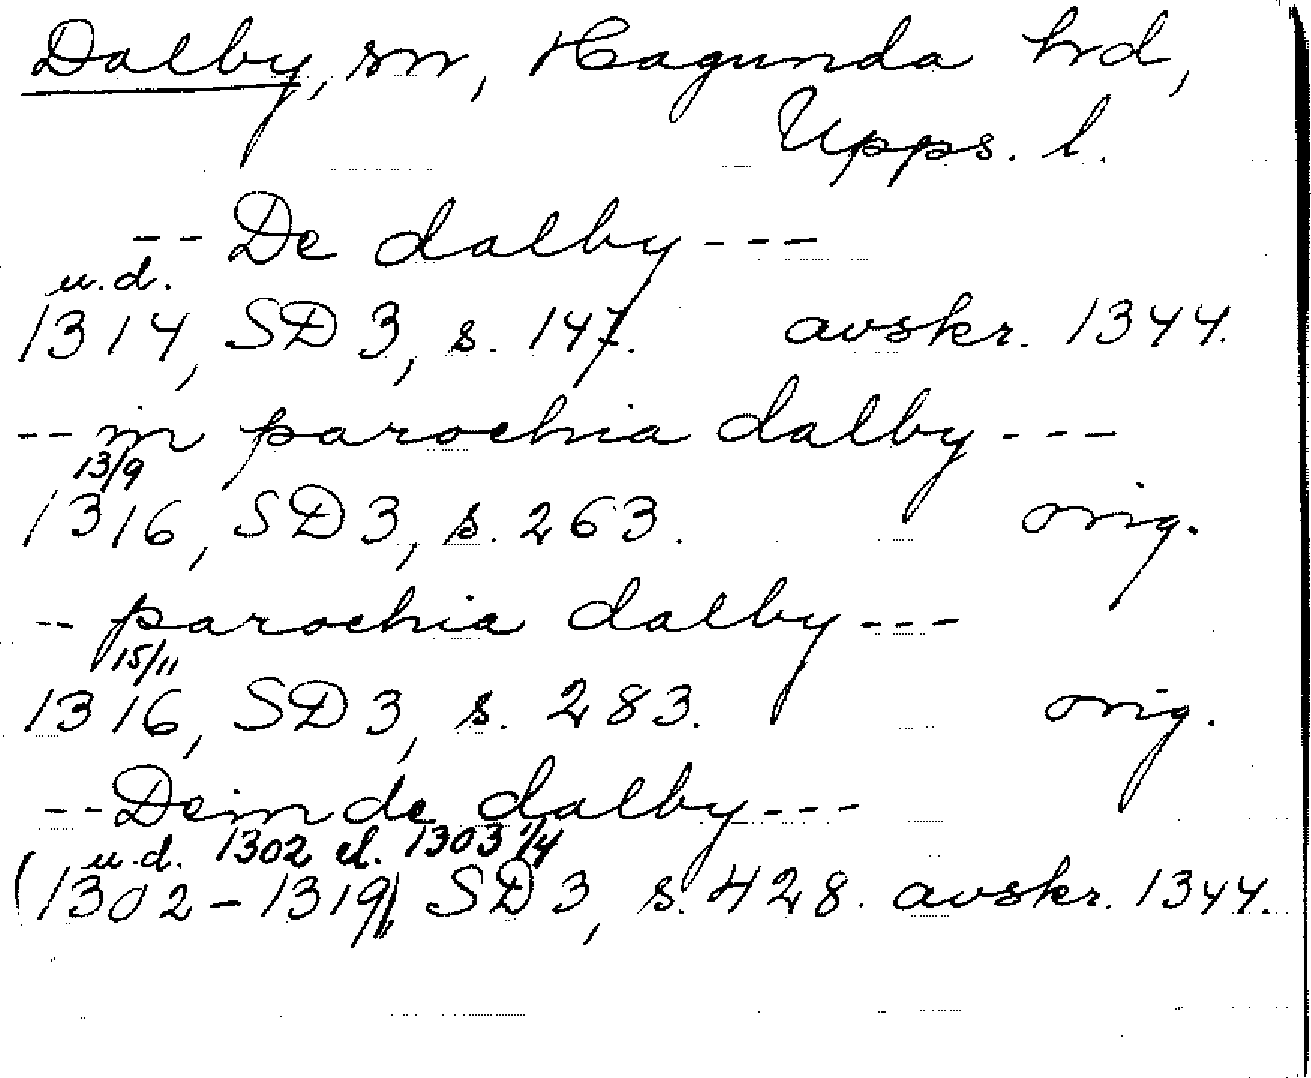 Dalby, sn, Hagunda hd,
Upps. l.
-- De dalby ---
u.d.
1314, SD 3, s. 147. avskr. 1344.
-- in parochia dalby ---
13/9
1316, SD 3, s. 263. orig.
-- parochia dalby ---
15/11
1316, SD 3, s. 283. orig.
-- Dein de dalby ---
u.d. 1302 el. 1303 1/4
(1302-1319), SD 3, s. 428. avskr. 1344.